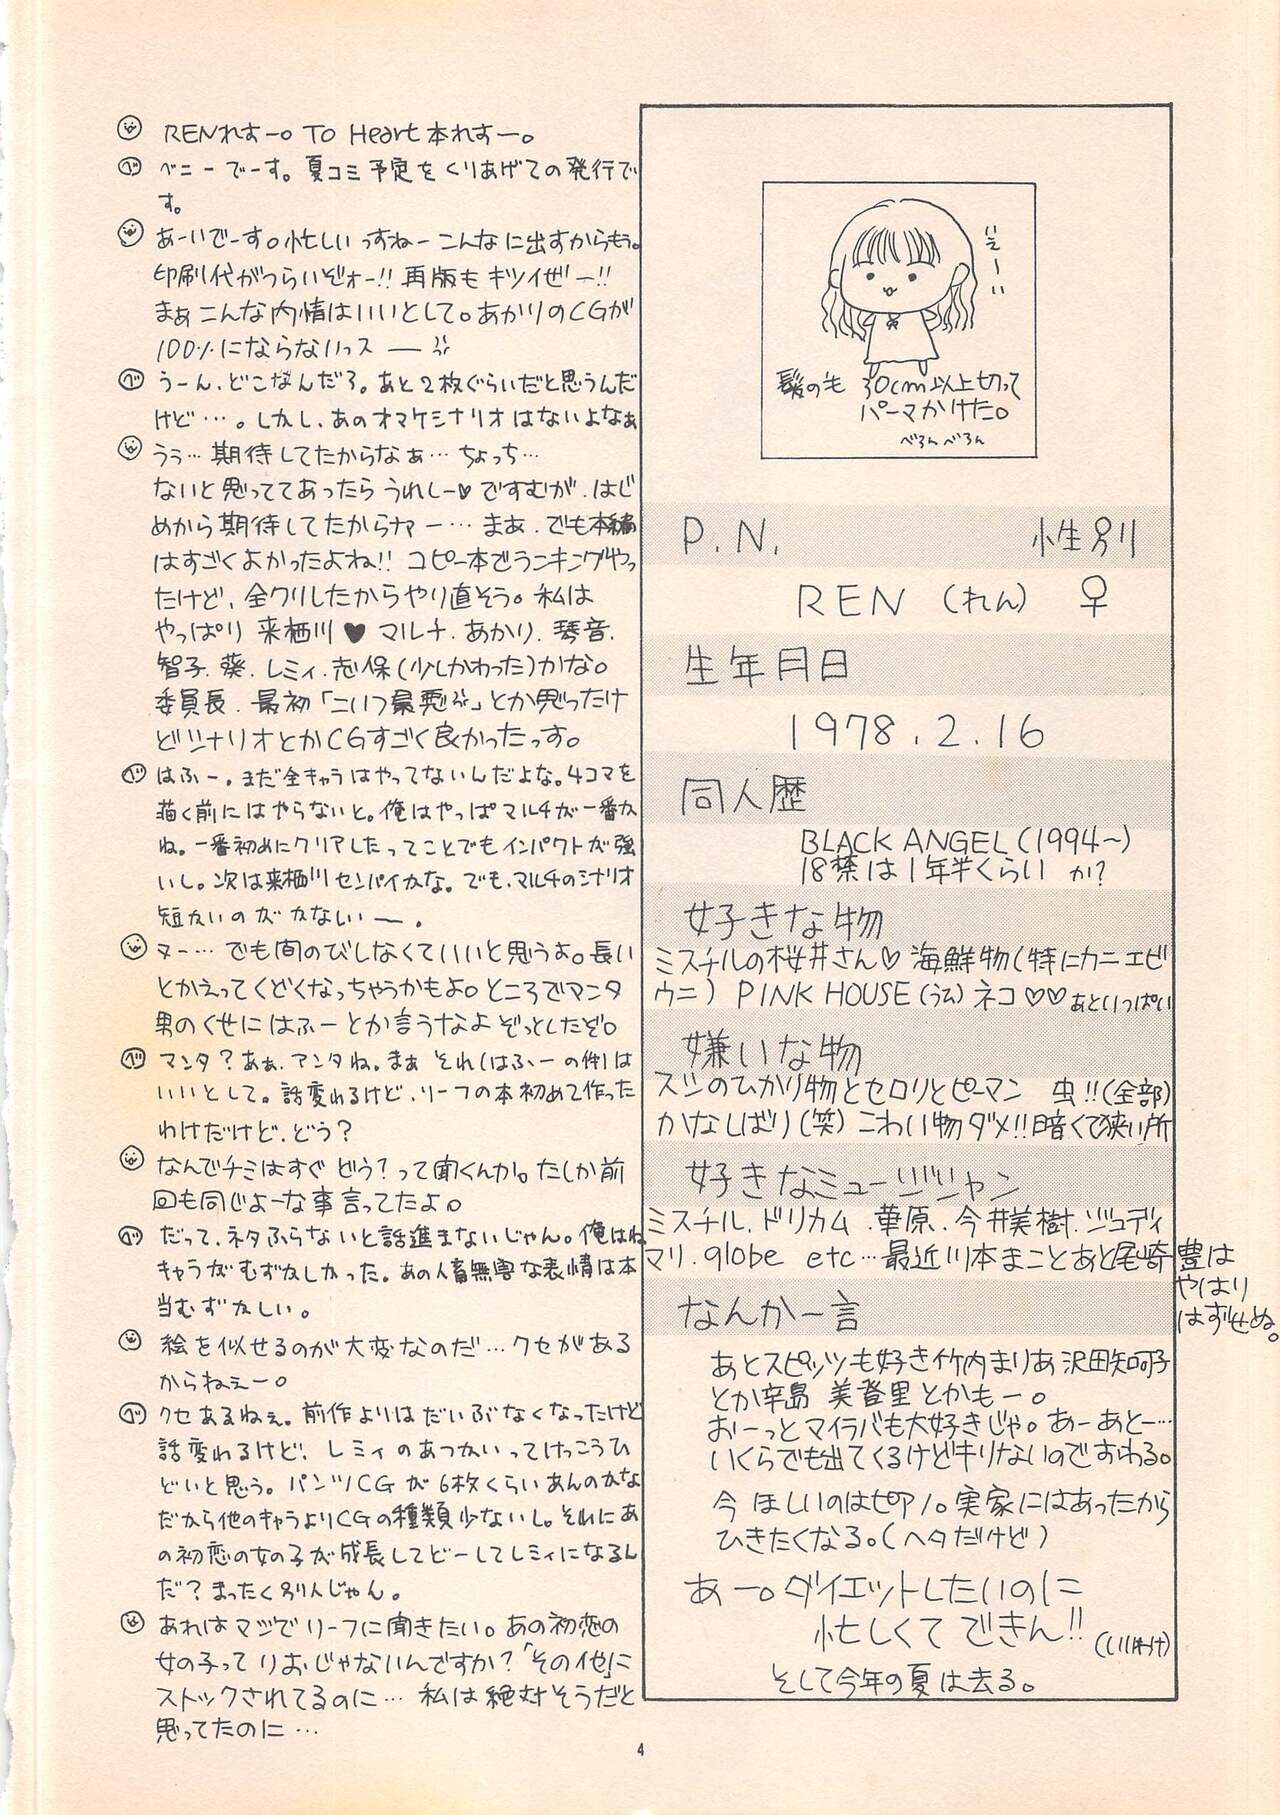 RENれすー。TO Heart本れすー。
ベ ベニーでーす。夏コミ予定をくりあげての発行で
す。
あーいでーす。忙しいっすねーこんなに出すからもう。
印刷代がつらいぞォー!! 再版もキツイぜー!!
まぁこんな内情はいいとして。あかりのCGが
100%にならないっスー
ベ うーん、どこなんだろ。あと2枚ぐらいだと思うんだ
けど…。しかし、あのオマケシナリオはないよなぁ
うぅ…期待してたからなぁ…ちょっち…
ないと思っててあったらうれしー♡ですむが、はじ
めから期待してたからナァー…まぁ、でも本編
はすごくよかったよね!! コピー本でランキングやっ
たけど、全クリしたからやり直そう。私は
やっぱり来栖川♥マルチ、あかり、琴音、
智子、葵、レミィ、志保(少しかわった)かな。
委員長、最初「こいつ最悪」とか思ったけ
どシナリオとかCGすごく良かったっす。
ベ はふー。まだ全キャラはやってないんだよな。4コマを
描く前にはやらないと。俺はやっぱマルチが一番か
ね。一番初めにクリアしたってことでもインパクトが強
いし。次は来栖川センパイかな。でも、マルチのシナリオ
短かいのがかなないー。
ヌー…でも間のびしなくていいと思うよ。長い
とかえってくどくなっちゃうかもよ。ところでマンタ
男のくせにはふーとか言うなよぞっとしたぞ。
ベ マンタ?あぁ、アンタね。まぁそれ(はふーの件)は
いいとして。話変わるけど、リーフの本初めて作った
わけだけど、どう?
なんでチミはすぐどう?って聞くんか。たしか前
回も同じよーな事言ってたよ。
ベ だって、ネタふらないと話進まないじゃん。俺はね
キャラがむずかしかった。あの人畜無害な表情は本
当むずかしい。
絵を似せるのが大変なのだ…クセがある
からねぇー。
ベ クセあるねぇ。前作よりはだいぶなくなったけど
話変わるけど、レミィのあつかいってけっこうひ
どいと思う。パンツCGが6枚くらいあんのかな
だから他のキャラよりCGの種類少ないし。それにあ
の初恋の女の子が成長してどーしてレミィになるん
だ?まったく別人じゃん。
あれはマジでリーフに聞きたい。あの初恋の
女の子ってりおじゃないんですか?「その他」に
ストックされてるのに…私は絶対そうだと
思ってたのに…
いえーい
髪の毛 30cm以上切って
パーマかけた。
べろんべろん
P.N. 性別
REN (れん) ♀
生年月日
1978.2.16
同人歴
BLACK ANGEL(1994〜)
18禁は1年半くらいか?
好きな物
ミスチルの桜井さん♡海鮮物(特にカニエビ
ウニ) PINK HOUSE(うム)ネコ♡♡あといっぱい
嫌いな物
スシのひかり物とセロリとピーマン 虫!!(全部)
かなしばり(笑)こわい物ダメ!!暗くて狭い所
好きなミュージジャン
ミスチル、ドリカム、華原、今井美樹、ジュディ
マリ、globe etc…最近川本まことあと尾崎豊は
やはり
はずせぬ。
なんか一言
あとスピッツも好き竹内まりあ沢田知可子
とか辛島 美登里とかもー。
おーっとマイラバも大好きじゃ。あーあとー…
いくらでも出てくるけどキリないのでおわる。
今ほしいのはピアノ。実家にはあったから
ひきたくなる。(ヘタだけど)
あー。ダイエットしたいのに
忙しくてできん!! (いいわけ)
そして今年の夏は去る。
4